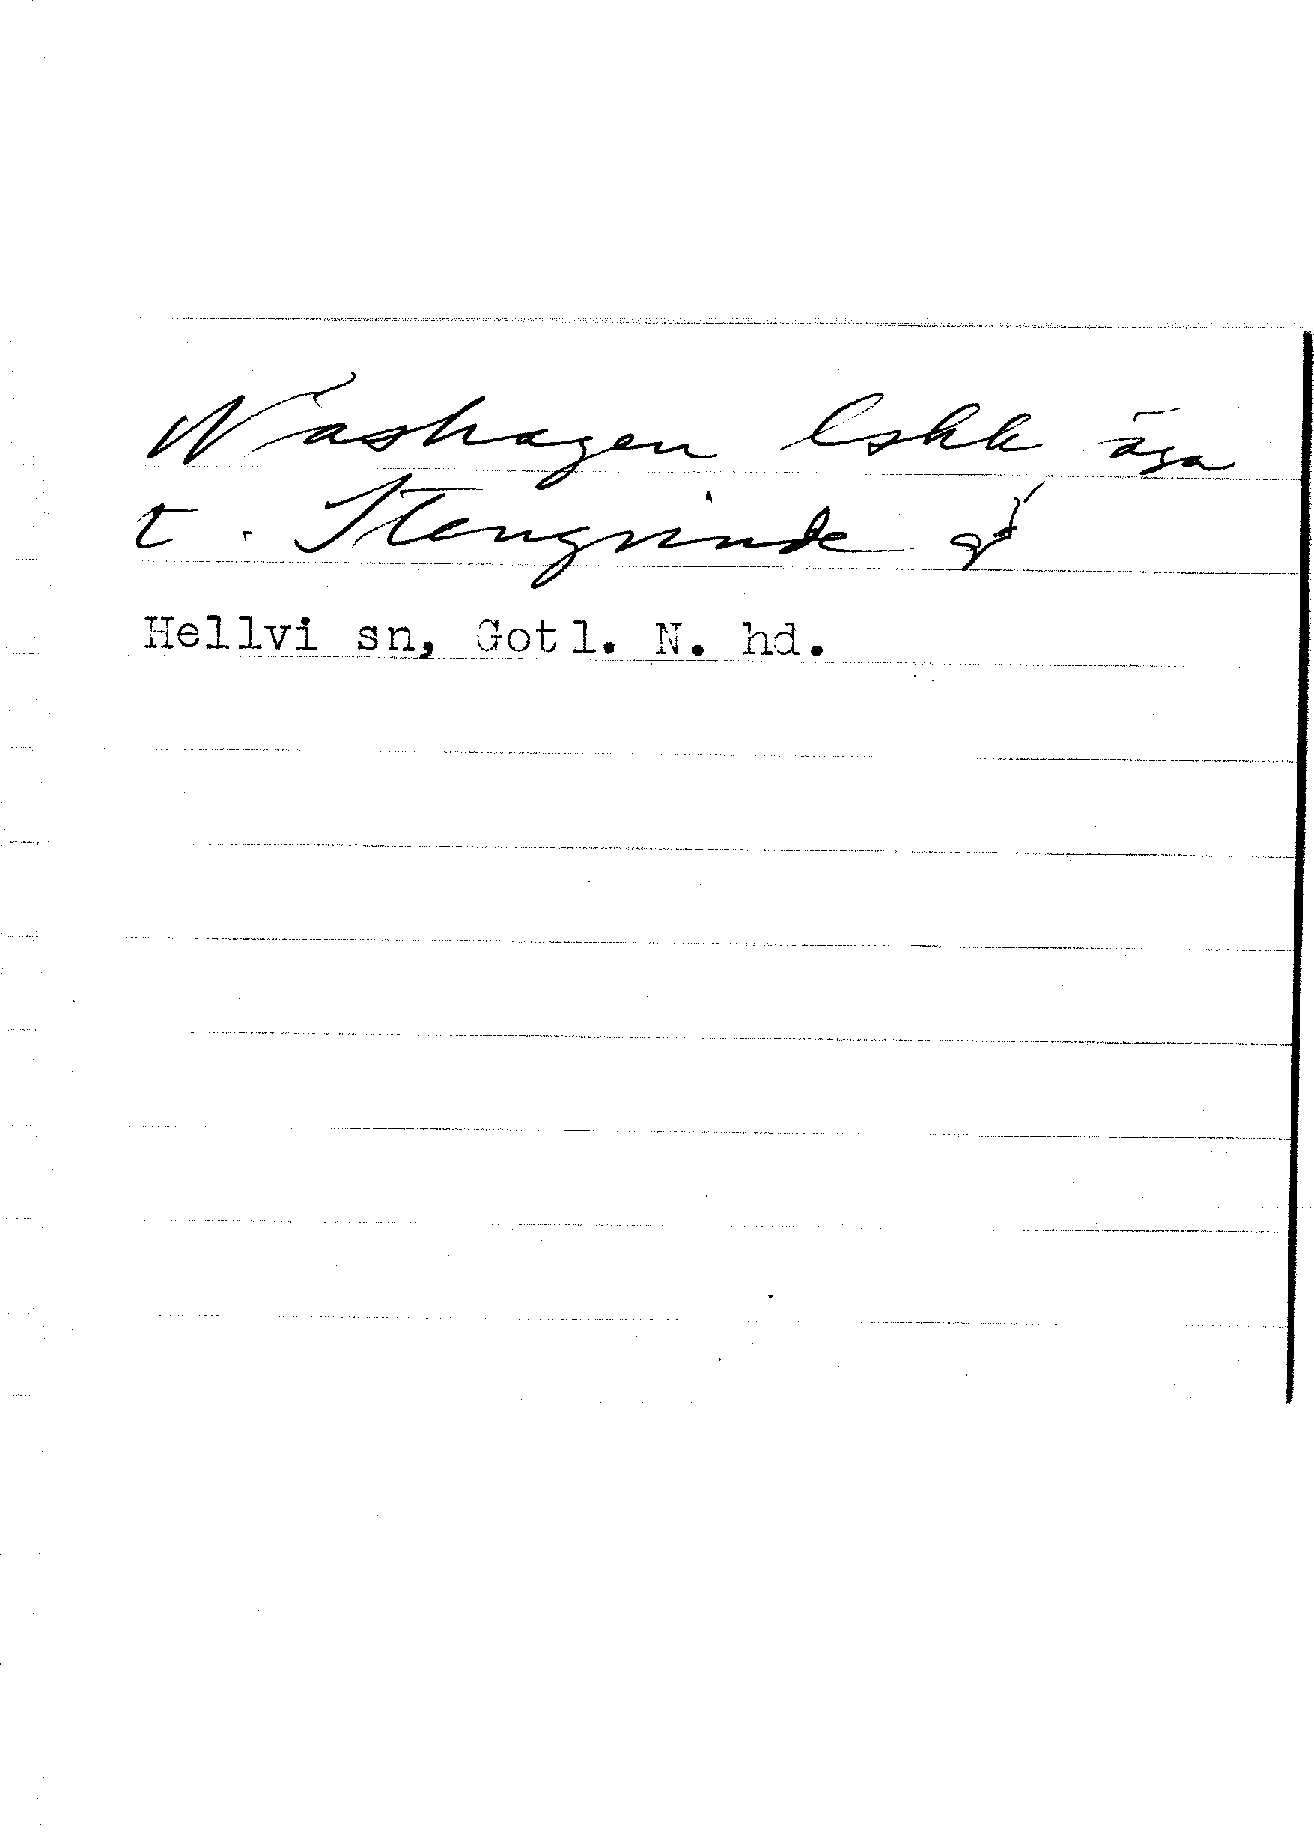 Näshagen lskk äga
t. Stengrinde gd
Hellvi sn, Gotl. N. hd.